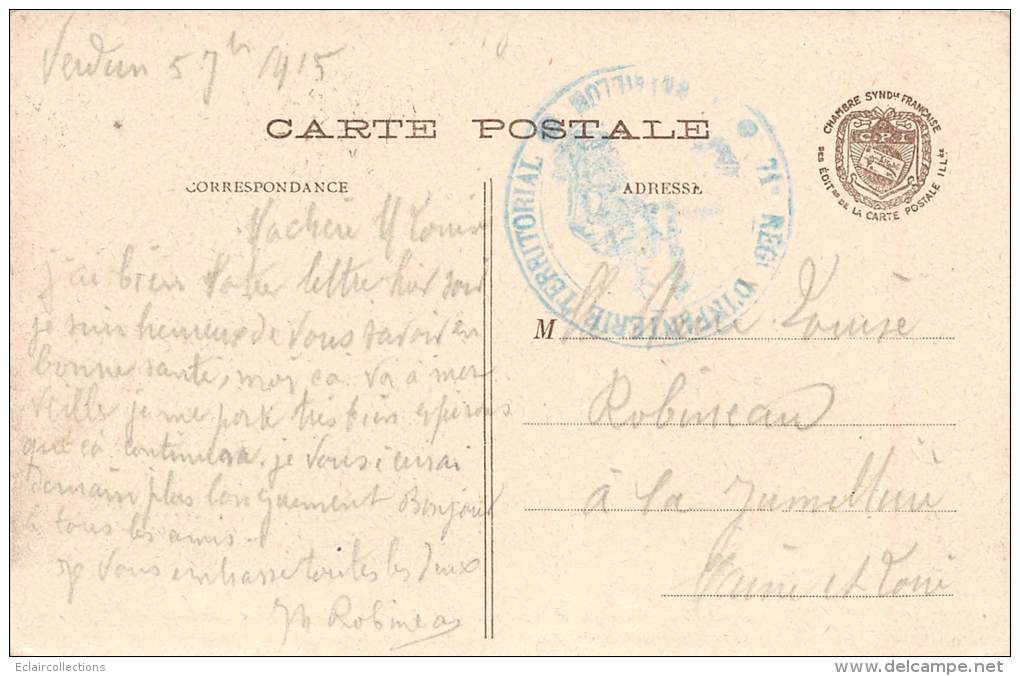 Verdun 5 7bre 1915
CARTE POSTALE
CORRESPONDANCE
ADRESSE
CHAMBRE SYNDle FRANÇAISE
DES ÉDITrs DE LA CARTE POSTALE ILLée
C.P.I.
71e REGt D'INFANTERIE TERRITORIAL
BATAILLON
Machère M Louise
j'ai bien votre lettre hier soir
je suis heureux de vous savoir en
bonne santé, moi ça va à mer
veille je me porte très bien espérons
que ça continuera. je vous écrirai
Demain plus longuement Bonjour
à tous les amis.
je vous embrasse toutes les deux
Robineau
M Louise
Robineau
à la Jumellière
Maine et Loire
Eclaircollections
www.delcampe.net